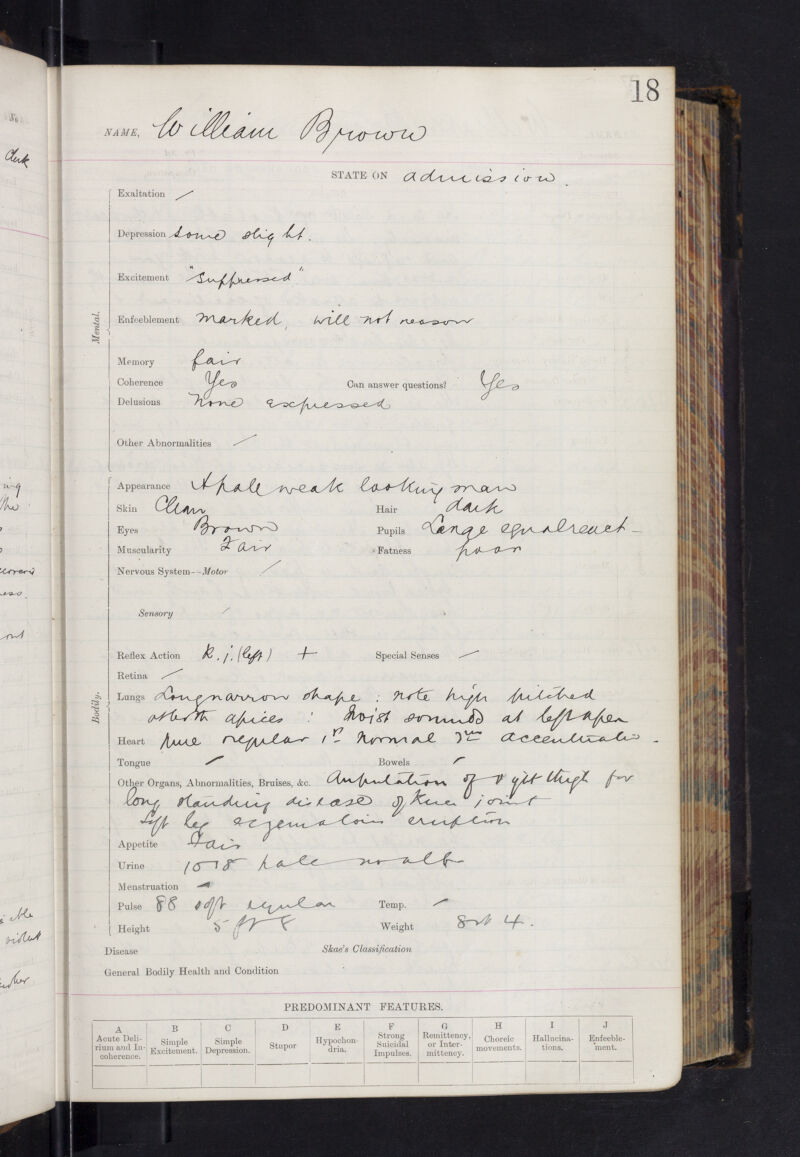 18
NAME, William Brown
STATE ON admission.
Exaltation /
Depression some slight.
Excitement "Suppressed"
Mental.
Enfeeblement marked, will not reason
Memory fair
Coherence Yes Can answer questions? Yes
Delusions None expressed
Other Abnormalities /
Appearance A pale weak looking man
Skin Clean Hair dark
Eyes Brown Pupils Large equal react
Muscularity Fair Fatness poor
Nervous System—Motor /
Sensory /
Reflex Action K. j. (left) + Special Senses /
Retina /
Bodily.
Lungs Long narrow shape : note high pitched
at both apices : Moist sounds at left apex
Heart Pure regular 1st normal 2nd accentuated
Tongue / Bowels /
Other Organs, Abnormalities, Bruises, &c. Amputation of right thigh for
long standing disease of knee joint
Left leg eczematous eruption
Appetite Fair
Urine 1018 pale no alb
Menstruation
Pulse 88 soft regular Temp. /
Height 5 ft 8 Weight 8 st 4.
Disease Skae's Classification
General Bodily Health and Condition
PREDOMINANT FEATURES.
A B C D E F G H I J
Acute Delirium and Incoherence. Simple Excitement. Simple Depression. Stupor Hypochondria. Strong Suicidal Impulses. Remittency, or Intermittency. Choreic movements. Hallucinations. Enfeeblement.
Clerk
ing
the
out
violent